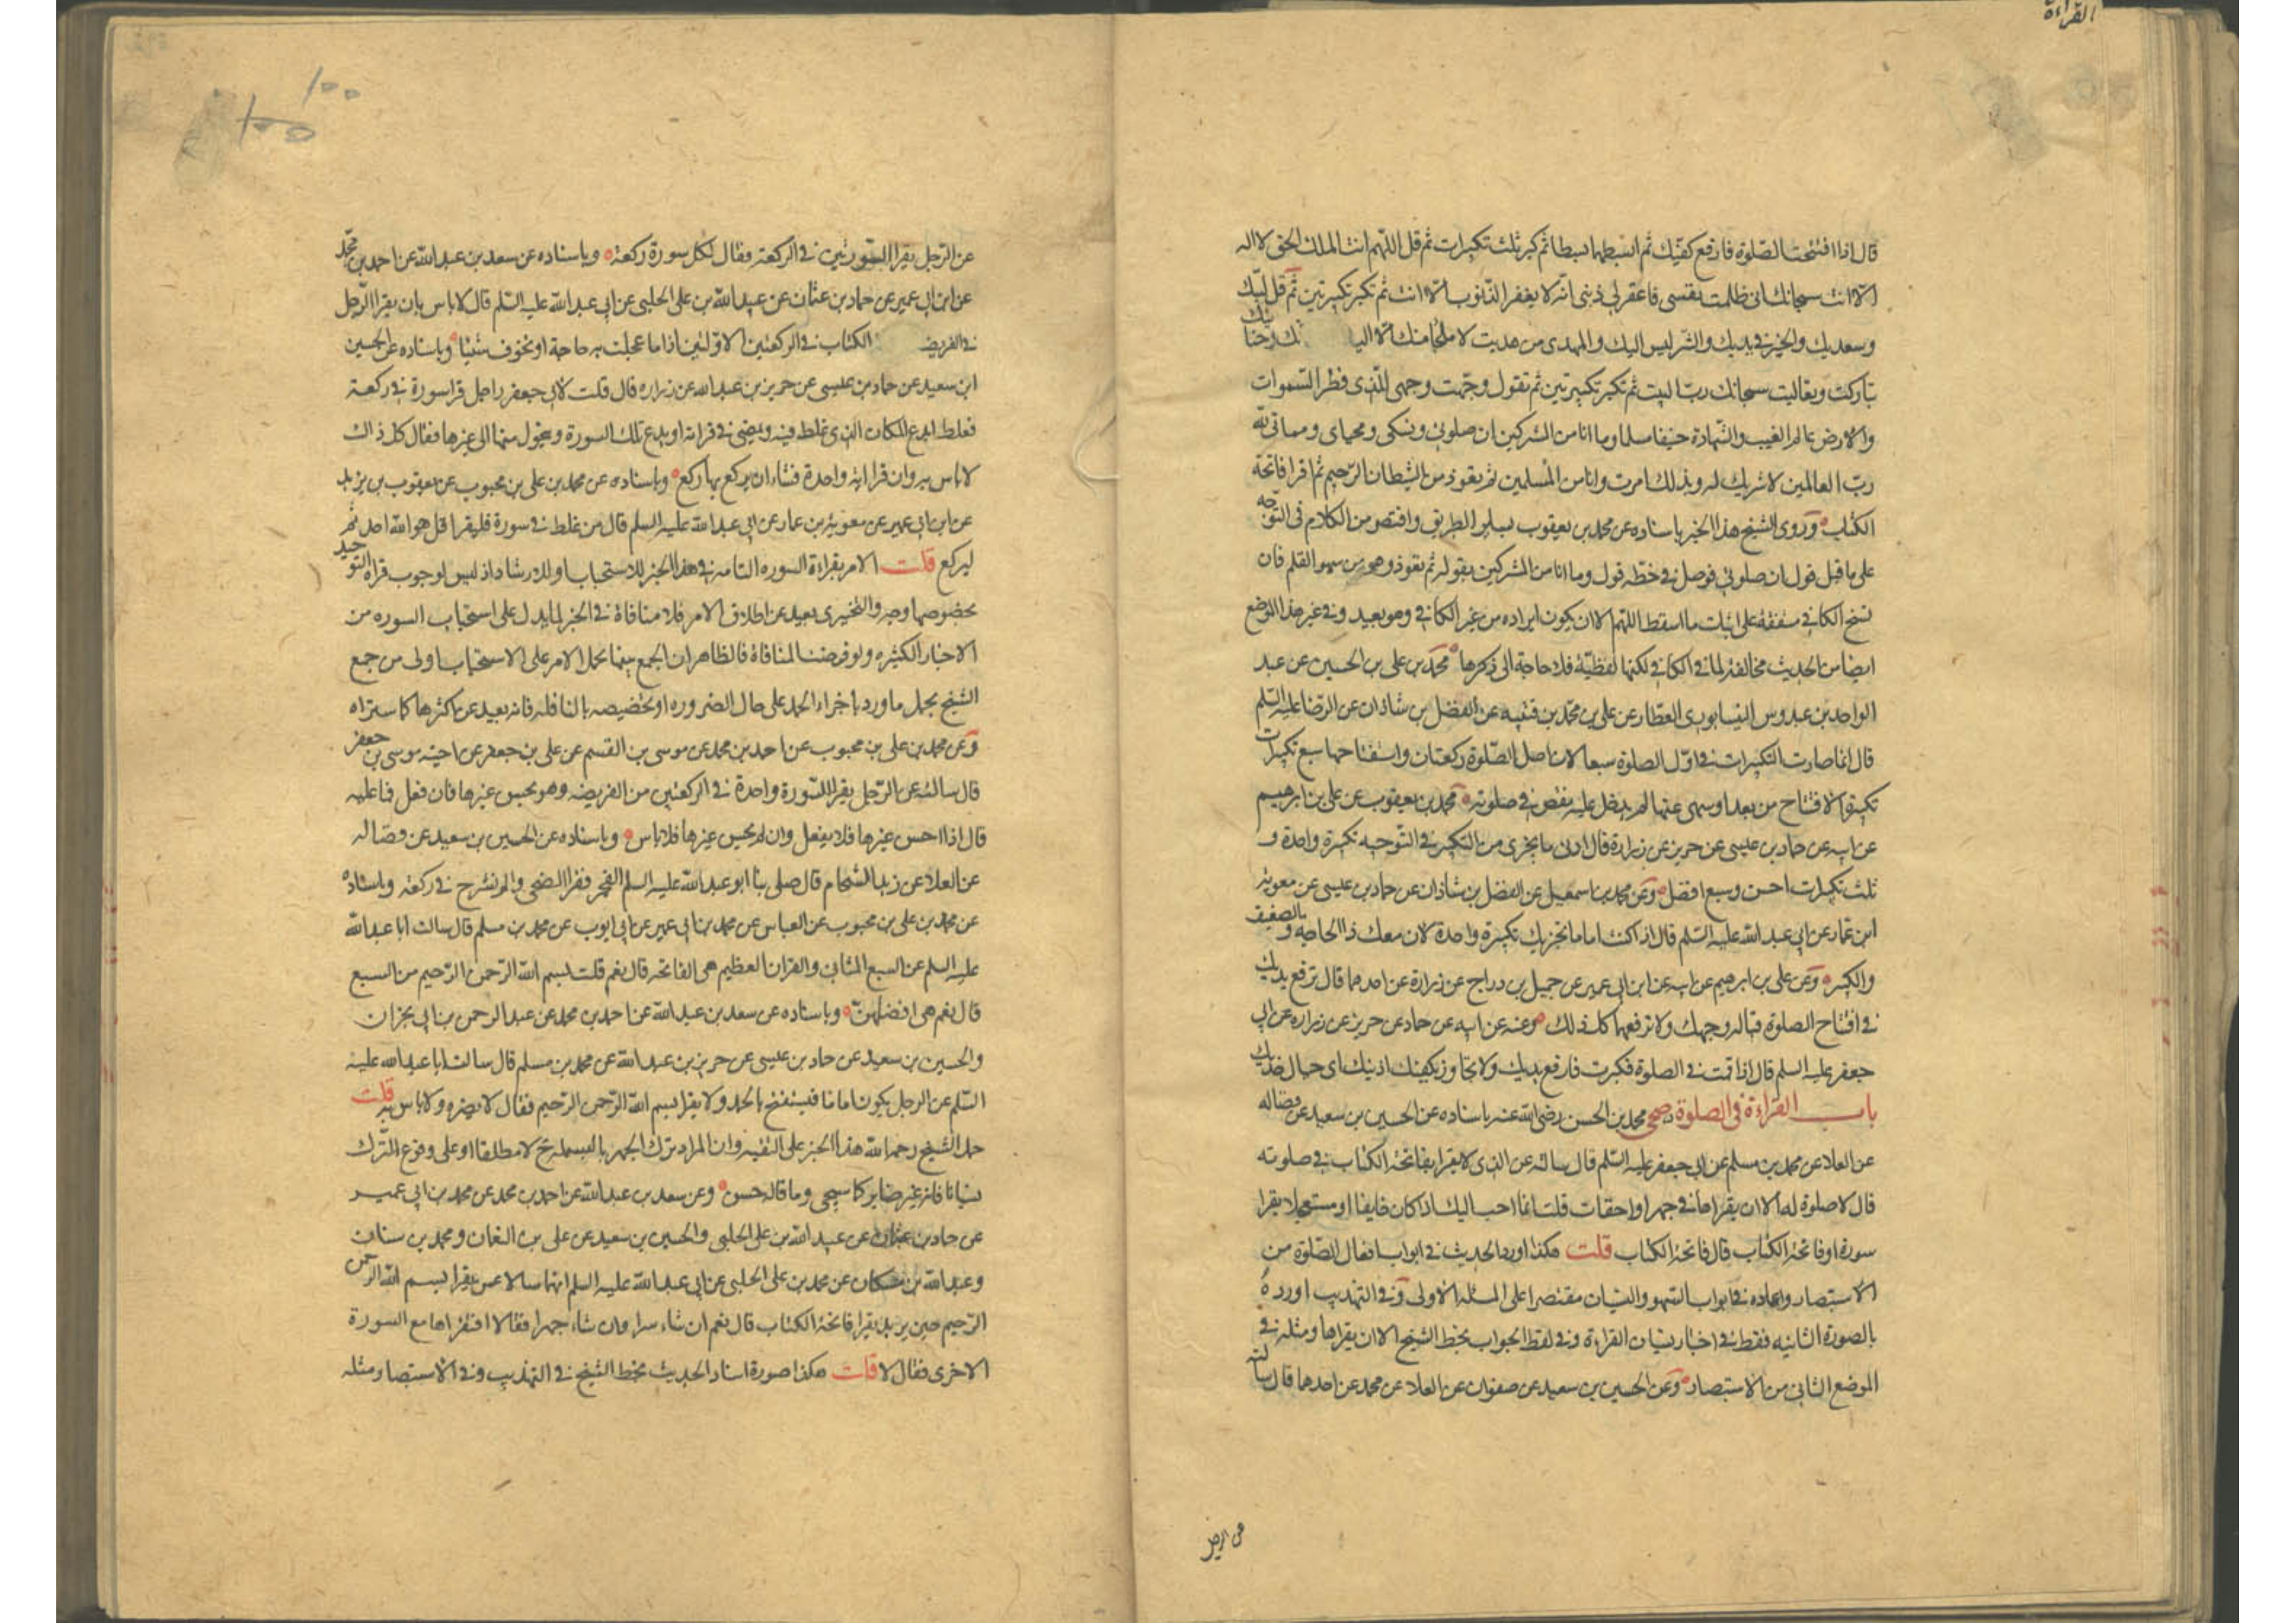 القراءة
قال اذا افتتحت الصلوة فارفع كفيك ثم ابسطهما بسطا ثم كبر ثلث تكبيرات ثم قل اللهم انت الملك الحق لا اله
الا انت سبحانك انى ظلمت نفسى فاغفر لى ذنبى انه لا يغفر الذنوب الا انت ثم تكبر تكبيرتين ثم قل لبيك
وسعديك والخير فى يديك والشر ليس اليك والمهدى من هديت لا ملجا منك الا اليك
تباركت وتعاليت سبحانك رب البيت ثم تكبر تكبيرتين ثم تقول وجهت وجهى للذى فطر السموات
والارض عالم الغيب والشهادة حنيفا مسلما وما انا من المشركين ان صلوتى ونسكى ومحياى ومماتى لله
رب العالمين لا شريك له وبذلك امرت وانا من المسلمين ثم تعوذ من الشيطان الرجيم ثم اقرا فاتحة
الكتاب وروى الشيخ هذا الخبر باسناده عن محمد بن يعقوب بساير الطريق واقتصر من الكلام فى التوجه
على ما قبل قول ان صلوتى فوصل فى خطه قول وما انا من المشركين بقوله ثم تعوذ وهو من سهو القلم فان
نسخ الكافى متفقة على اثبات ما اسقط اللهم الا ان يكون ايراده من غير الكافى وهو بعيد وفى غير هذا الموضع
ايضا من الحديث مخالفة لما فى الكافى لكنها لفظية فلا حاجة الى ذكرها محمد بن على بن الحسين عن عبد
الواحد بن عبدوس النيسابورى العطار عن على بن محمد بن قتيبه عن الفضل بن شاذان عن الرضا عليه السلم
قال انما صارت التكبيرات فى اول الصلوة سبعا لان اصل الصلوة ركعتان واستفتاحهما سبع تكبيرات
تكبيرة الافتتاح من بعد او سهى عنها لم يدخل عليه نقص فى صلوته محمد بن يعقوب عن على بن ابرهيم
عن ابيه عن حماد بن عيسى عن حريز عن زرارة قال ادنى ما يجزى من التكبير فى التوجه تكبيرة واحدة و
ثلث تكبيرات احسن وسبع افضل وعن محمد بن اسمعيل عن الفضل بن شاذان عن حماد بن عيسى عن معوية
ابن عمار عن ابى عبد الله عليه السلم قال اذا كنت اماما تجزيك تكبيرة واحدة لان معك ذا الحاجه والضعيف
والكبير وعن على بن ابرهيم عن ابيه عن ابن ابى عمير عن جميل بن دراج عن زرارة عن احدهما قال ترفع يديك
فى افتتاح الصلوة قبالة وجهك ولا ترفعهما كل ذلك وعنه عن ابيه عن حماد عن حريز عن زراره عن ابى
جعفر عليه السلم قال اذا قمت فى الصلوة فكبرت فارفع يديك ولا تجاوز بكفيك اذنيك اى حيال خديك
باب القراءة فى الصلوة صحى محمد بن الحسن رضى الله عنه باسناده عن الحسين بن سعيد عن فضاله
عن العلا عن محمد بن مسلم عن ابى جعفر عليه السلم قال سالته عن الذى لا يقرا بفاتحة الكتاب فى صلوته
قال لا صلوة له الا ان يقراها فى جهر او اخفات قلت ايما احب اليك اذا كان خايفا او مستعجلا يقرا
سورة او فاتحة الكتاب قال فاتحة الكتاب قلت هكذا اورد الحديث فى ابواب افعال الصلوة من
الاستبصار واعاده فى ابواب السهو والنسيان مقتصرا على المسئله الاولى وفى التهذيب اورده
بالصورة الثانيه فقط فى اخبار نسيان القراءة وفى لفظ الجواب بخط الشيخ الا ان يقراها ومثله فى
الموضع الثانى من الاستبصار وعن الحسين بن سعيد عن صفوان عن العلا عن محمد عن احدهما قال سالته
عن الرجل
١٠٠
عن الرجل يقرا السورتين فى الركعة فقال لكل سورة ركعة وباسناده عن سعد بن عبد الله عن احمد بن محمد
عن ابن ابى عمير عن حماد بن عثمان عن عبيد الله بن على الحلبى عن ابى عبد الله عليه السلم قال لا باس بان يقرا الرجل
فى الفريضة الكتاب فى الركعتين الاولتين اذا ما عجلت به حاجة او تخوف شيئا وباسناده عن الحسين
ابن سعيد عن حماد بن عيسى عن حريز بن عبد الله عن زراره قال قلت لابى جعفر راجل قرا سورة فى ركعة
فغلط ايدع المكان الذى غلط فيه ويمضى فى قراته او يدع تلك السورة ويتحول منها الى غيرها فقال كل ذلك
لا باس به وان قرا اية واحدة فشاء ان يركع بها ركع وباسناده عن محمد بن على بن محبوب عن يعقوب بن يزيد
عن ابن ابى عمير عن معوية بن عمار عن ابى عبد الله عليه السلم قال من غلط فى سورة فليقرا قل هو الله احد ثم
ليركع قلت الامر بقراءة السوره التامه فى هذا الخبر للاستحباب او للارشاد اذ ليس لوجوب قراه التوحيد
بخصوصها وجه والتخيرى بعيد عن اطلاق الامر فلا منافاة فى الخبر لما يدل على استحباب السوره من
الاخبار الكثيره ولو فرضنا المنافاة فالظاهر ان الجمع بينها بحمل الامر على الاستحباب اولى من جمع
الشيخ بحمل ما ورد باجزاء الحمد على حال الضروره او تخصيصه بالنافله فانه بعيد عن اكثرها كما ستراه
وعن محمد بن على بن محبوب عن احمد بن محمد عن موسى بن القسم عن على بن جعفر عن اخيه موسى بن جعفر
قال سالته عن الرجل يقرا السورة واحدة فى الركعتين من الفريضه وهو يحسن غيرها فان فعل فما عليه
قال اذا احسن غيرها فلا يفعل وان لم يحسن غيرها فلا باس وباسناده عن الحسين بن سعيد عن فضاله
عن العلا عن زيد الشحام قال صلى بنا ابو عبد الله عليه السلم الفجر فقرا الضحى والم نشرح فى ركعة وباسناده
عن محمد بن على بن محبوب عن العباس عن محمد بن ابى عمير عن ابى ايوب عن محمد بن مسلم قال سالت ابا عبد الله
عليه السلم عن السبع المثانى والقران العظيم هى الفاتحه قال نعم قلت بسم الله الرحمن الرحيم من السبع
قال نعم هى افضلهن وباسناده عن سعد بن عبد الله عن احمد بن محمد عن عبد الرحمن بن ابى نجران
والحسين بن سعيد عن حماد بن عيسى عن حريز بن عبد الله عن محمد بن مسلم قال سالت ابا عبد الله عليه
السلم عن الرجل يكون اماما فيستفتح بالحمد ولا يقرا بسم الله الرحمن الرحيم فقال لا يضره ولا باس به قلت
حمل الشيخ رحمه الله هذا الخبر على التقيه وان المراد ترك الجهر بالبسمله لا مطلقا او على وقوع الترك
نسيانا فانه غير ضاير كما سيجى وما قاله حسن وعن سعد بن عبد الله عن احمد بن محمد عن محمد بن ابى عمير
عن حماد بن عثمان عن عبيد الله بن على الحلبى والحسين بن سعيد عن على بن النعمان ومحمد بن سنان
وعبد الله بن مسكان عن محمد بن على الحلبى عن ابى عبد الله عليه السلم انهما سالاه عمن يقرا بسم الله الرحمن
الرحيم حين يريد يقرا فاتحة الكتاب قال نعم ان شاء سرا وان شاء جهرا فقالا افنقراها مع السورة
الاخرى فقال لا قلت هكذا صورة اسناد الحديث بخط الشيخ فى التهذيب وفى الاستبصار ومثله